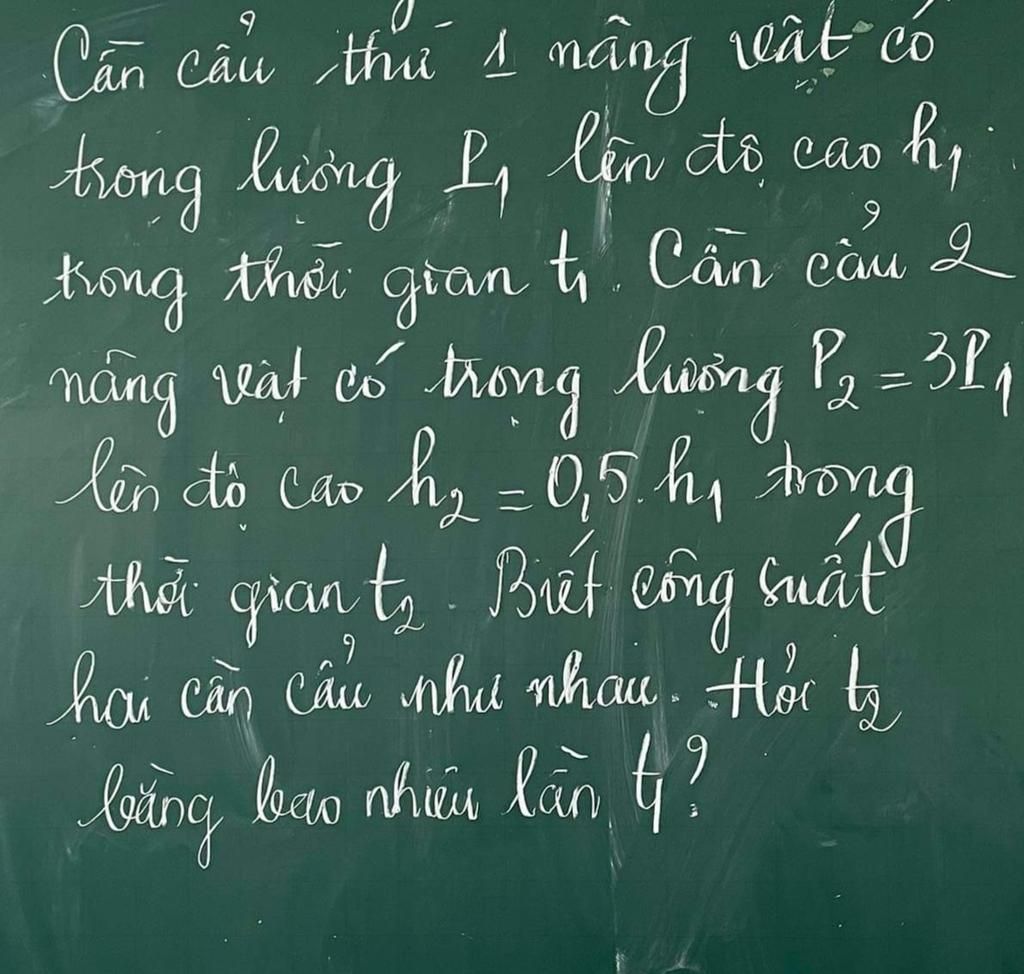 Cần cẩu thứ 1 nâng vật có
trọng lượng P₁ lên độ cao h₁
trong thời gian t₁. Cần cẩu 2
nâng vật có trọng lượng P₂ = 3P₁
lên độ cao h₂ = 0,5.h₁ trong
thời gian t₂. Biết công suất
hai cần cẩu như nhau. Hỏi t₂
bằng bao nhiêu lần t₁?